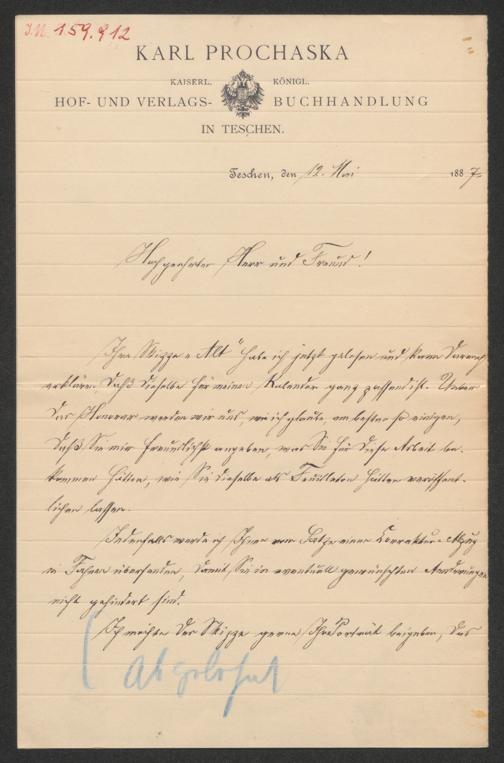 I.N. 159.912
KARL PROCHASKA
KAISERL. KÖNIGL.
HOF- UND VERLAGS- BUCHHANDLUNG
IN TESCHEN.
Teschen, den 12. Mai 1887
Hochgeehrter Herr und Freund!
Ihre Skizze „Alt“ habe ich jetzt gelesen und kann darnach
erklären, daß dieselbe für meinen Kalender ganz passend ist. Ueber
das Honorar werden wir uns, wie ich glaube, am besten so einigen,
daß Sie mir freundlichst angeben, was Sie für diese Arbeit be-
kommen hätten, wie Sie dieselbe als Feuilleton hätten veröffent-
lichen lassen.
Jedenfalls werde ich Ihnen vom Satze einen Correktur-Abzug
in Fahnen übersenden, damit Sie in eventuell gewünschten Aenderungen
nicht gehindert sind.
Ich möchte der Skizze gerne Ihr Porträt beigeben, das
Abgelehnt